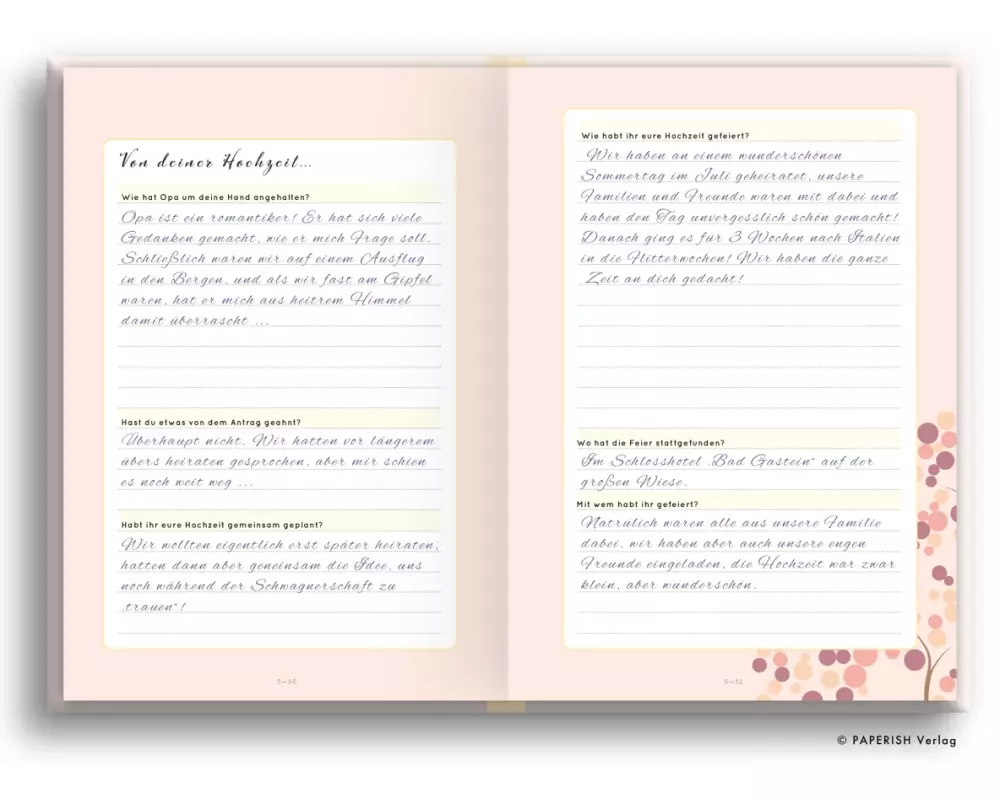 Von deiner Hochzeit...
Wie hat Opa um deine Hand angehalten?
Opa ist ein romantiker! Er hat sich viele
Gedanken gemacht, wie er mich Frage soll.
Schließlich waren wir auf einem Ausflug
in den Bergen, und als wir fast am Gipfel
waren, hat er mich aus heitrem Himmel
damit überrascht ...
Hast du etwas von dem Antrag geahnt?
Überhaupt nicht. Wir hatten vor längerem
übers heiraten gesprochen, aber mir schien
es noch weit weg ...
Habt ihr eure Hochzeit gemeinsam geplant?
Wir wollten eigentlich erst später heiraten,
hatten dann aber geneinsam die Idee, uns
noch während der Schwagnerschaft zu
„trauen“!
Wie habt ihr eure Hochzeit gefeiert?
Wir haben an einem wunderschönen
Sommertag im Juli geheiratet, unsere
Familien und Freunde waren mit dabei und
haben den Tag unvergesslich schön gemacht!
Danach ging es für 3 Wochen nach Italien
in die Flitterwochen! Wir haben die ganze
Zeit an dich gedacht!
Wo hat die Feier stattgefunden?
Im Schlosshotel „Bad Gastein“ auf der
großen Wiese.
Mit wem habt ihr gefeiert?
Natrülich waren alle aus unsere Familie
dabei, wir haben aber auch unsere engen
Freunde eingeladen, die Hochzeit war zwar
klein, aber wunderschön.
© PAPERISH Verlag